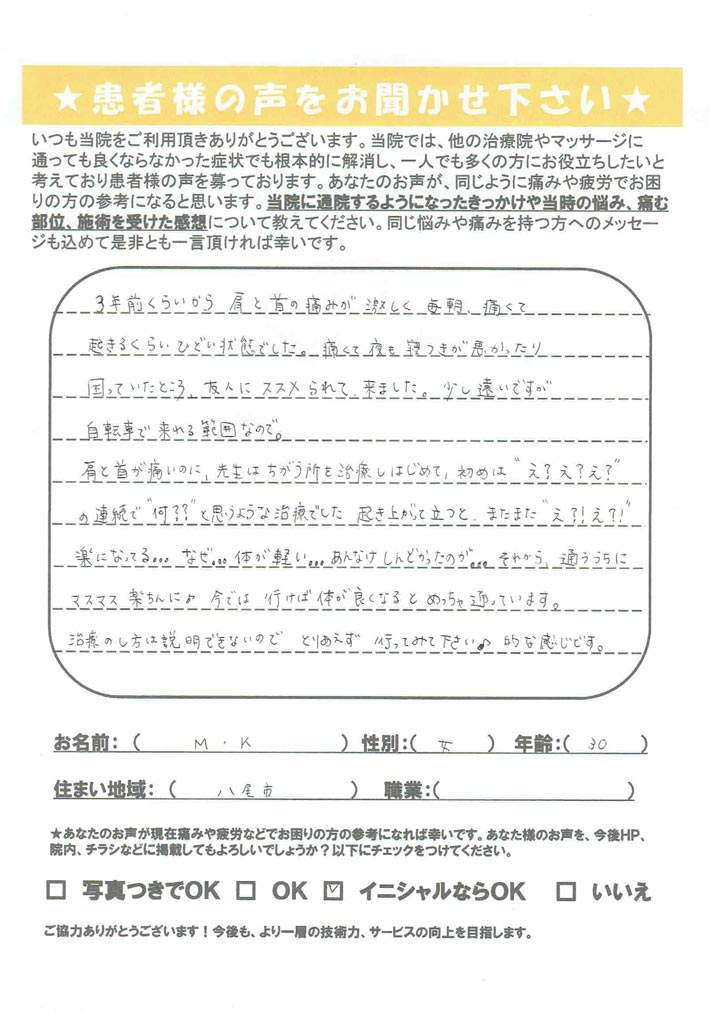 ★患者様の声をお聞かせ下さい★
いつも当院をご利用頂きありがとうございます。当院では、他の治療院やマッサージに
通っても良くならなかった症状でも根本的に解消し、一人でも多くの方にお役立ちしたいと
考えており患者様の声を募っております。あなたのお声が、同じように痛みや疲労でお困
りの方の参考になると思います。当院に通院するようになったきっかけや当時の悩み、痛む
部位、施術を受けた感想について教えてください。同じ悩みや痛みを持つ方へのメッセー
ジも込めて是非とも一言頂ければ幸いです。
3年前くらいから 肩と首の痛みが 激しく 毎朝、痛くて
起きるくらい ひどい状態でした。痛くて夜も寝つきが悪かったり
困っていたところ、友人に ススメられて、来ました。少し遠いですが
自転車で来れる範囲なので。
肩と首が痛いのに、先生はちがう所を治療しはじめて、初めは"え?え?え?"
の連続で"何??"と思うような治療でした 起き上がって立つと、またまた"え?!え?!"
楽になってる... なぜ... 体が軽い... あんなけしんどかったのが... それから、通ううちに
マスマス楽ちんに♪ 今では 行けば体が良くなると めっちゃ通っています。
治療のし方は説明できないので とりあえず 行ってみて下さい♪ 的な感じです。
お名前:( M・K ) 性別:( 女 ) 年齢:( 30 )
住まい地域:( 八尾市 ) 職業:( )
★あなたのお声が現在痛みや疲労などでお困りの方の参考になれば幸いです。あなた様のお声を、今後HP、
院内、チラシなどに掲載してもよろしいでしょうか?以下にチェックをつけてください。
□ 写真つきでOK □ OK ☑ イニシャルならOK □ いいえ
ご協力ありがとうございます!今後も、より一層の技術力、サービスの向上を目指します。